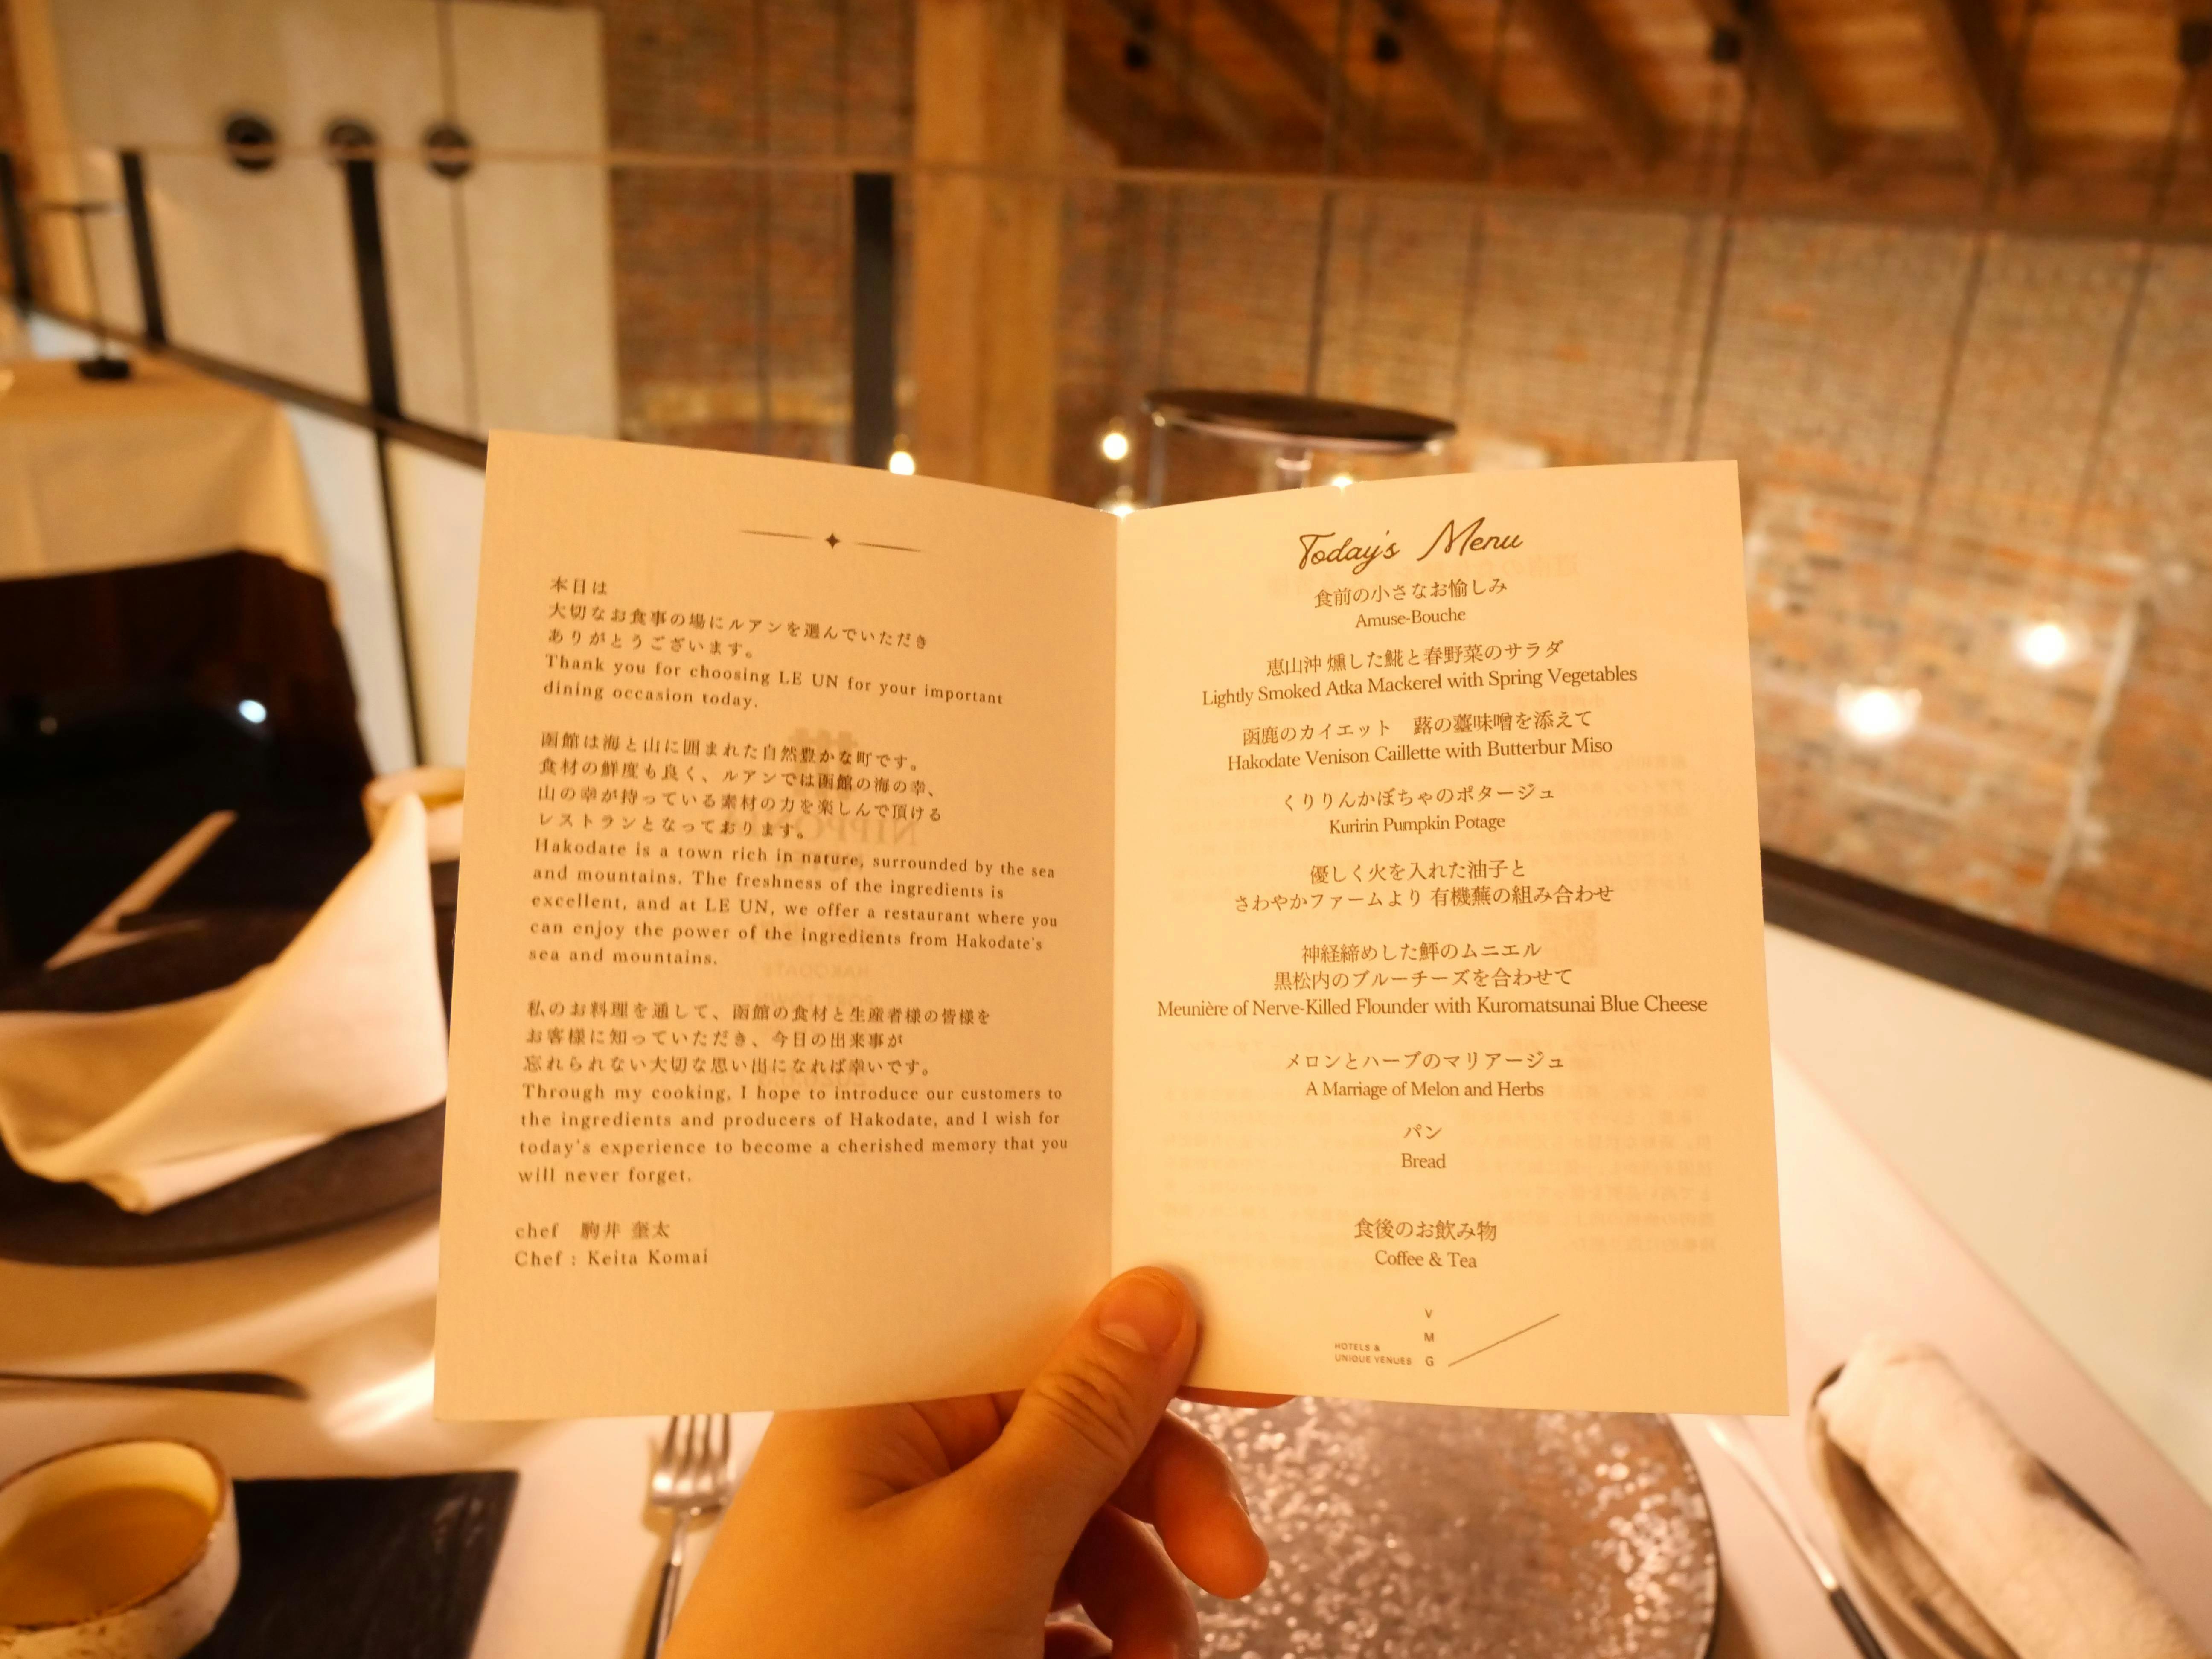 本日は
大切なお食事の場にルアンを選んでいただき
ありがとうございます。
Thank you for choosing LE UN for your important
dining occasion today.
函館は海と山に囲まれた自然豊かな町です。
食材の鮮度も良く、ルアンでは函館の海の幸、
山の幸が持っている素材の力を楽しんで頂ける
レストランとなっております。
Hakodate is a town rich in nature, surrounded by the sea
and mountains. The freshness of the ingredients is
excellent, and at LE UN, we offer a restaurant where you
can enjoy the power of the ingredients from Hakodate's
sea and mountains.
私のお料理を通して、函館の食材と生産者様の皆様を
お客様に知っていただき、今日の出来事が
忘れられない大切な思い出になれば幸いです。
Through my cooking, I hope to introduce our customers to
the ingredients and producers of Hakodate, and I wish for
today's experience to become a cherished memory that you
will never forget.
chef 駒井 奎太
Chef : Keita Komai
Today's Menu
食前の小さなお愉しみ
Amuse-Bouche
恵山沖 燻した𩸽と春野菜のサラダ
Lightly Smoked Atka Mackerel with Spring Vegetables
函鹿のカイエット 蕗の薹味噌を添えて
Hakodate Venison Caillette with Butterbur Miso
くりりんかぼちゃのポタージュ
Kuririn Pumpkin Potage
優しく火を入れた油子と
さわやかファームより 有機蕪の組み合わせ
神経締めした鮃のムニエル
黒松内のブルーチーズを合わせて
Meunière of Nerve-Killed Flounder with Kuromatsunai Blue Cheese
メロンとハーブのマリアージュ
A Marriage of Melon and Herbs
パン
Bread
食後のお飲み物
Coffee & Tea
HOTELS &
UNIQUE VENUES
V
M
G